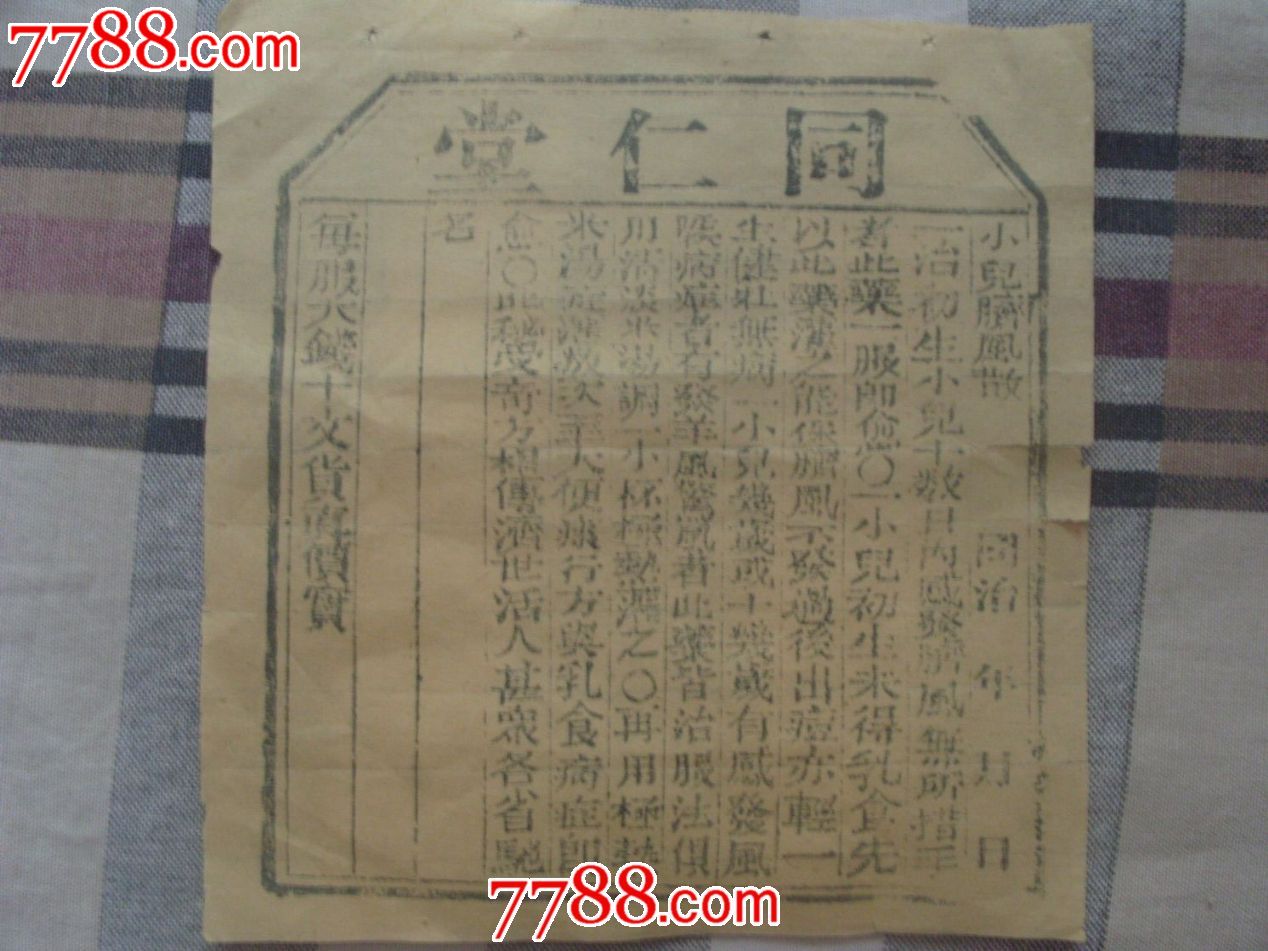 7788.com
同仁堂
小兒臍風散 同治 年 月 日
一治初生小兒十數日內感發臍風無所措手
者此藥一服即愈〇一小兒初生未得乳食先
以此藥洗之能保臍風不發過後出痘亦輕一
生健壯無病一小兒幾歲或十幾歲有感發風
痰病症者有發羊風驚風者此藥皆治服法俱
用 淡米湯調一小杯極熱 之〇再用極熱
米湯 大便 行方與乳食病症即
愈〇此秘受奇方相傳濟世活人甚眾各省馳
名
每服大錢十文貨真價實
7788.com